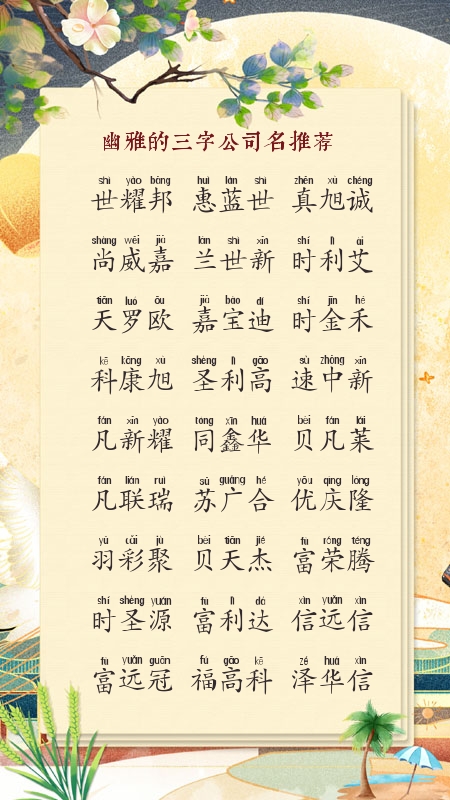 幽雅的三字公司名推荐
shì yào bāng huì lán shì zhēn xù chéng
世耀邦 惠蓝世 真旭诚
shàng wēi jiā lán shì xīn shí lì ài
尚威嘉 兰世新 时利艾
tiān luó ōu jiā bǎo dí shí jīn hé
天罗欧 嘉宝迪 时金禾
kē kāng xù shèng lì gāo sù zhōng xīn
科康旭 圣利高 速中新
fán xīn yào tóng xīn huá bèi fán lái
凡新耀 同鑫华 贝凡莱
fán lián ruì sū guǎng hé yōu qìng lóng
凡联瑞 苏广合 优庆隆
yǔ cǎi jù bèi tiān jié fù róng téng
羽彩聚 贝天杰 富荣腾
shí shèng yuán fù lì dá xìn yuǎn xìn
时圣源 富利达 信远信
fù yuǎn guān fú gāo kē zé huá xìn
富远冠 福高科 泽华信